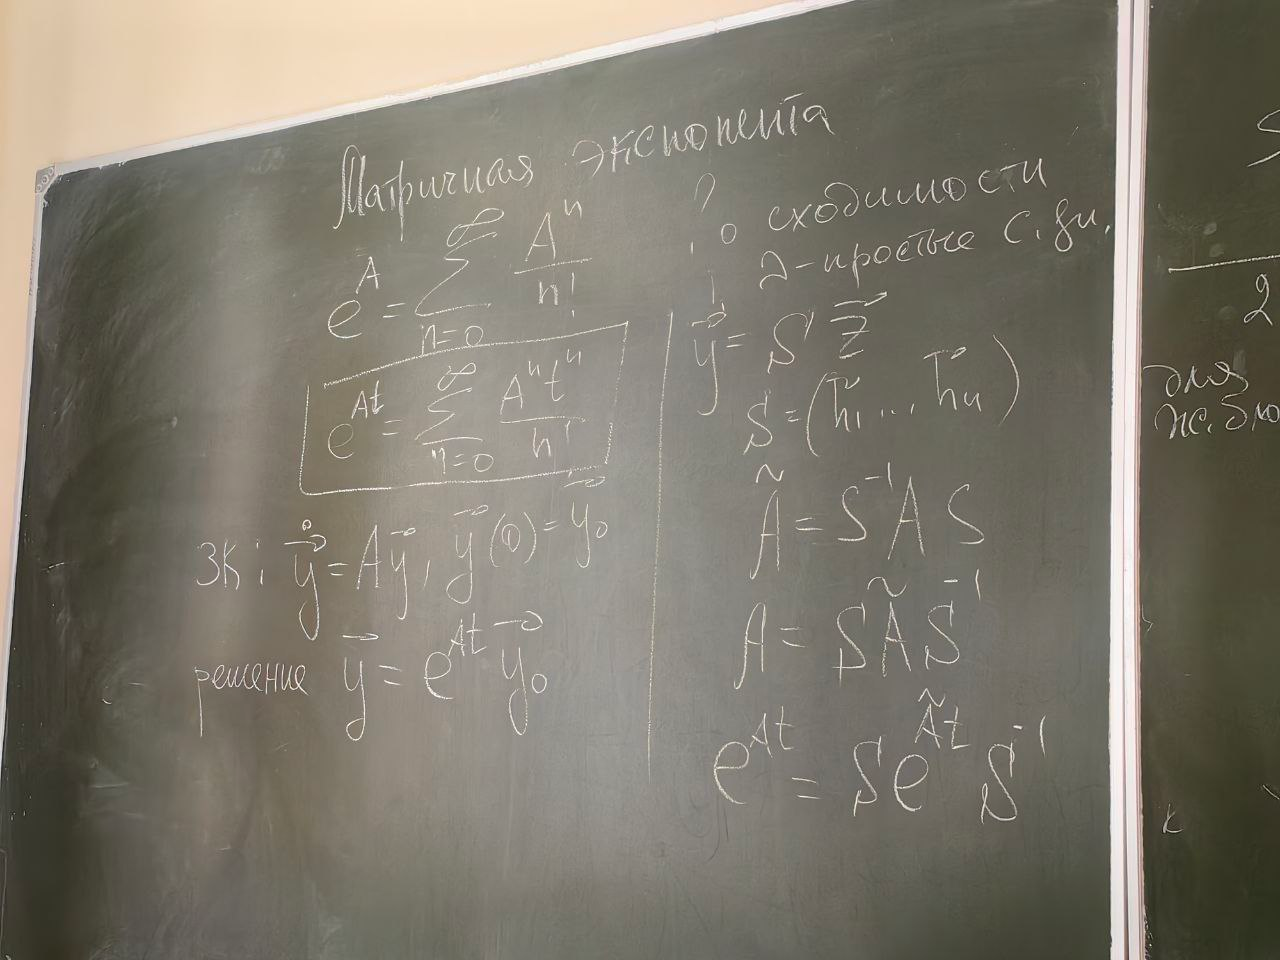 Матричная экспонента
e^A = ∑_{n=0}^{∞} A^n / n!
e^{At} = ∑_{n=0}^{∞} A^n t^n / n!
ЗК: \dot{\vec{y}} = A\vec{y}, \vec{y}(0) = \vec{y}_0
решение \vec{y} = e^{At} \vec{y}_0
? о сходимости
λ - простые с. зн.
\vec{y} = S \vec{z}
S = (\vec{h}_1 ... \vec{h}_n)
Ã = S^{-1} A S
A = S Ã S^{-1}
e^{At} = S e^{Ãt} S^{-1}
2
для